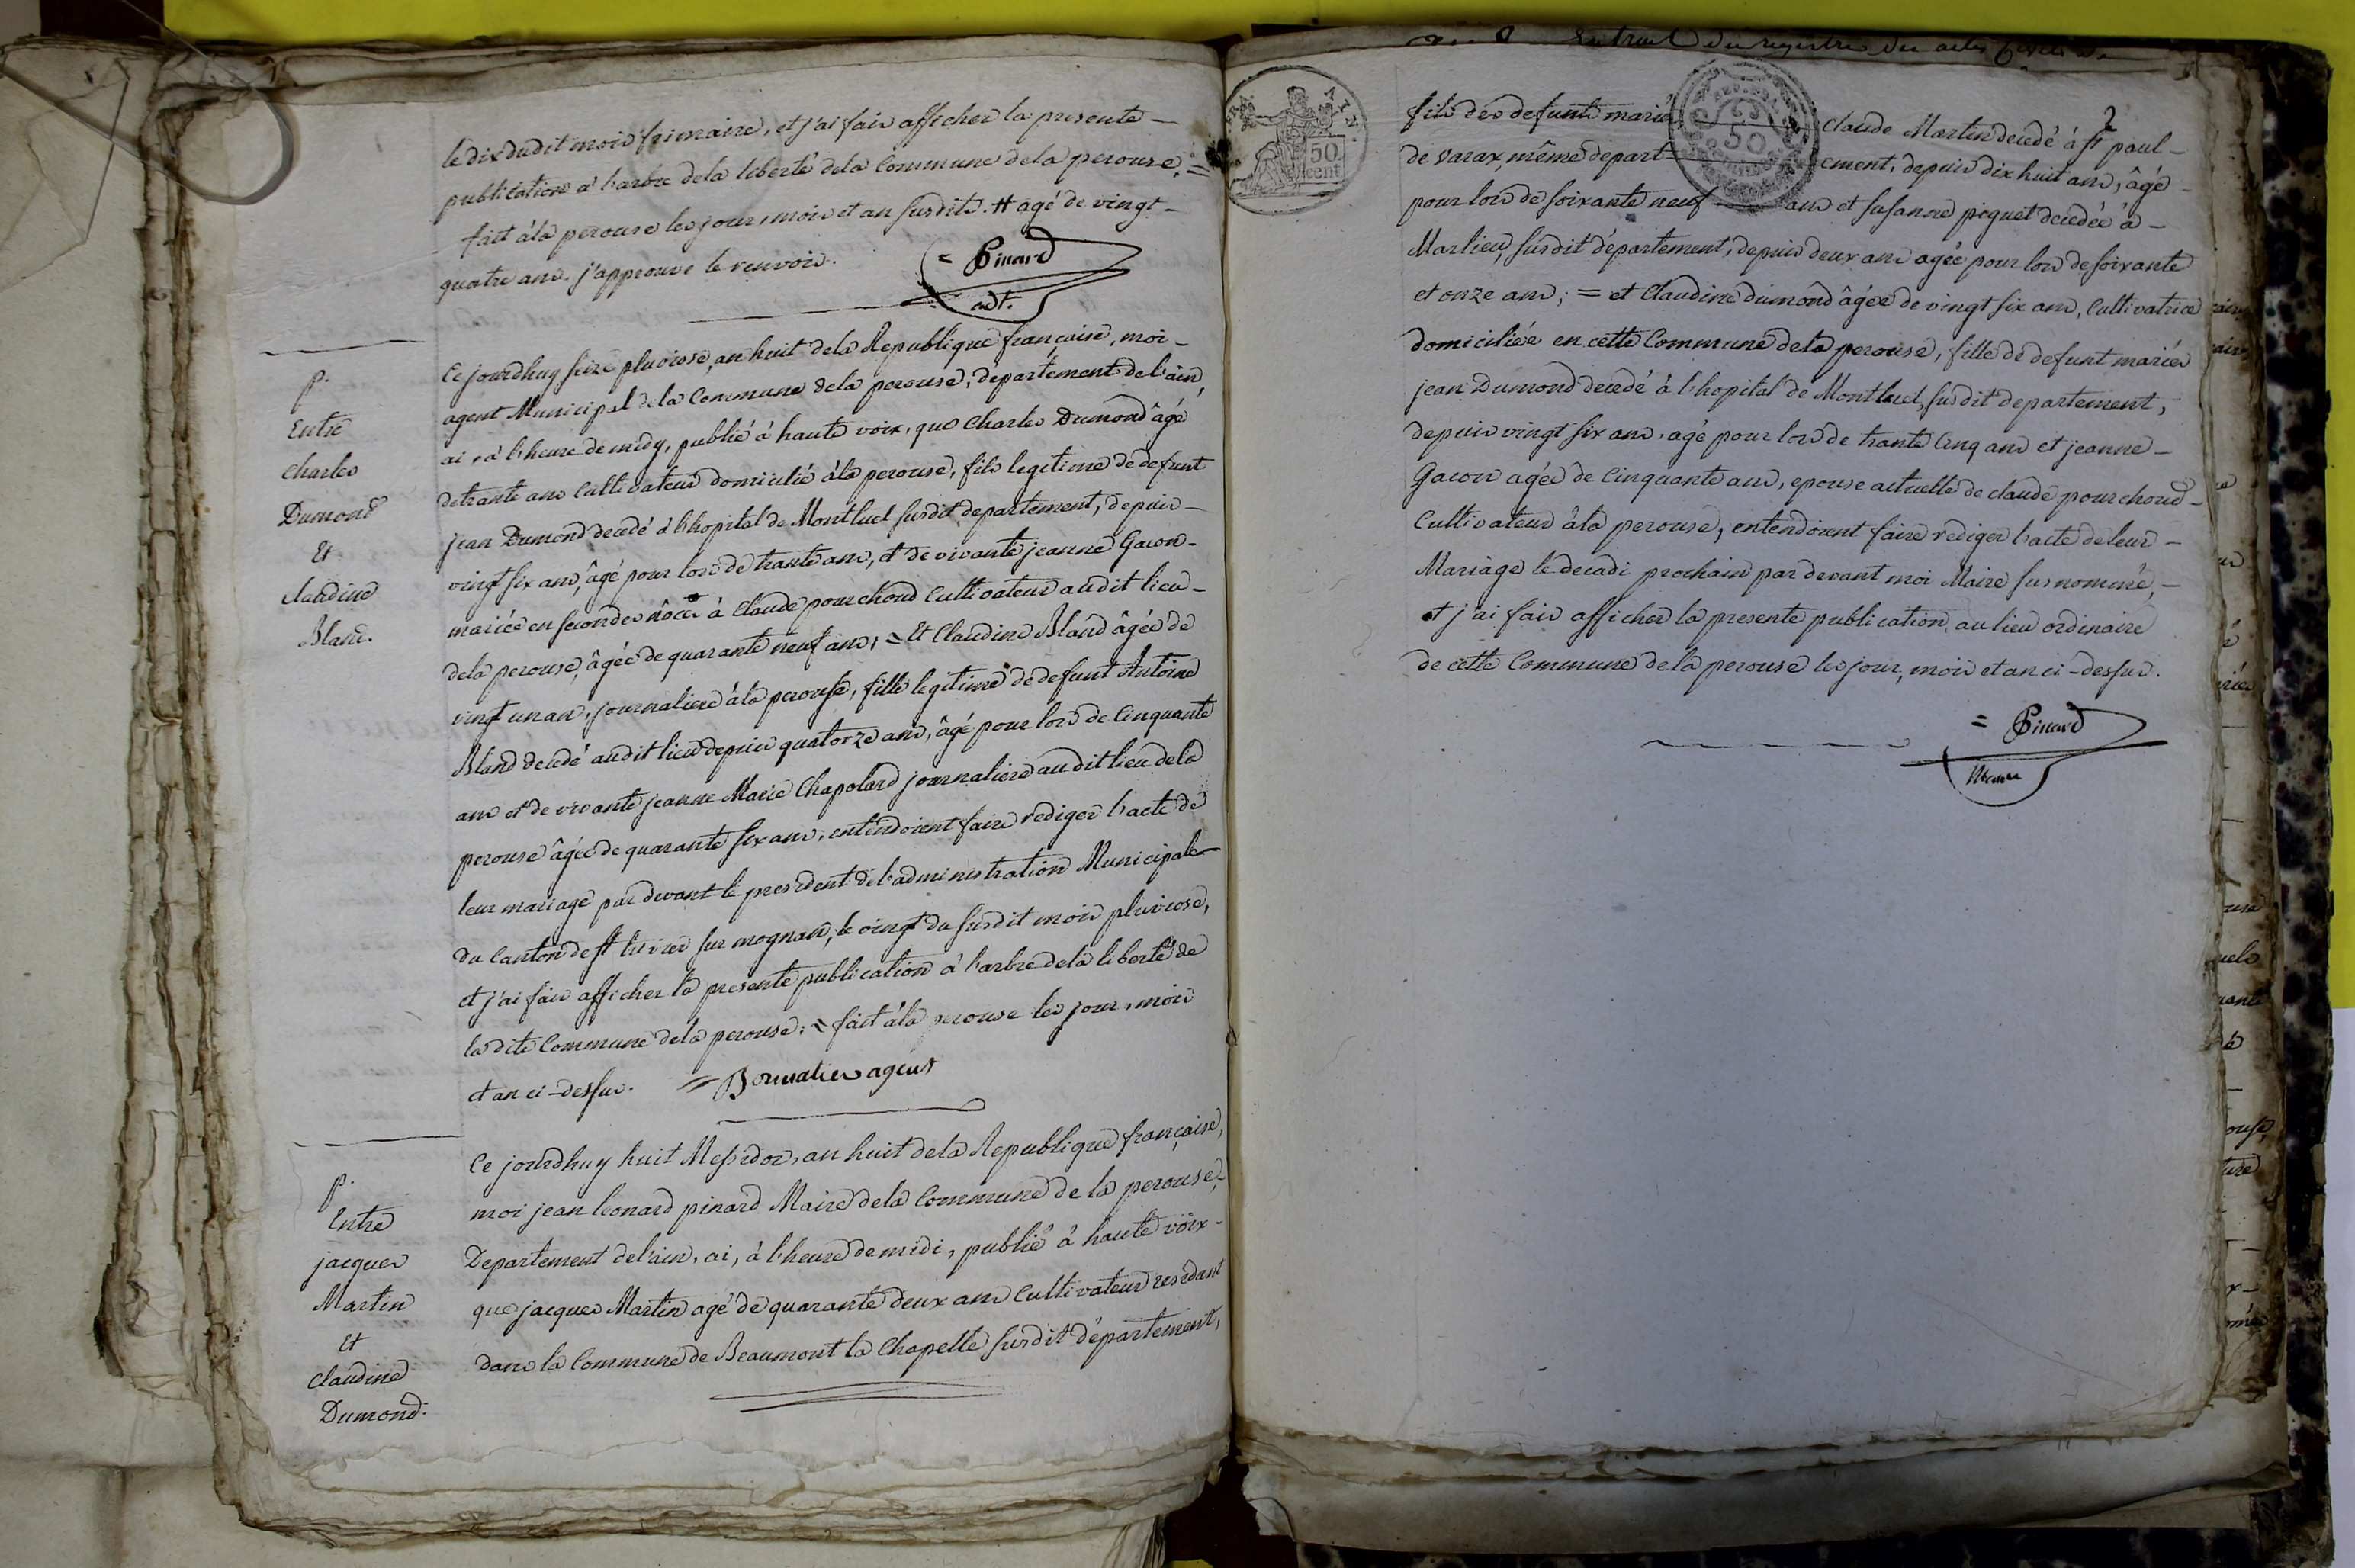 le dix dudit mois frimaire, et j'ai fais afficher la presente —
publication à l'arbre dela liberté dela Commune dela perouse; =
fait àla perouse les jour, mois et an susdits. # agé de vingt —
quatre ans. j'approuve le renvois.
= Pinard
adt.
p.
Entre
charles
Dumond
Et
claudine
Bland.
Ce jourdhuy seize pluviose, an huit dela Republique française, moi —
agent Municipal dela Commune dela perouse, département del'ain,
ai, à l'heure de midy, publié à haute voix, que Charles Dumond âgé
detrante ans Cultivateur domicilié àla perouse, fils legitime de defunt
jean Dumond decedé à l'hopital de Montluel susdit departement, depuis —
vingt six ans, âgé pour lors de trante ans, et de vivante jeanne Gacon —
mariée en secondes nôces à Claude pourchoud Cultivateur audit lieu —
dela perouse, âgée de quarante neuf ans; = Et Claudine Bland âgée de
vingt un an, journaliere àla perouse, fille legitime de defunt Antoine
Bland decedé audit lieu depuis quatorze ans, âgé pour lors de Cinquante
ans et de vivante jeanne Marie Chapolard journaliere audit lieu dela
perouse âgée de quarante six ans, entendoient faire rediger l'acte de
leur mariage par devant le president de l'administration Municipale
du Canton de st trivier sur mognan, le vingt du susdit mois pluviose,
et j'ai fais afficher la presente publication à l'arbre dela liberté de
ladite Commune dela perouse; = fait àla perouse les jour, mois
et an ci-dessus. = Bornatier agent
p.
Entre
jacques
Martin
Et
Claudine
Dumond.
Ce jourdhuy huit Messidor, an huit dela Republique française,
moi jean leonard pinard Maire dela Commune de la perouse,
Departement del'ain, ai, à l'heure de midi, publié à haute voix —
que jacques Martin agé de quarante deux ans Cultivateur residant
dans la Commune de Beaumont la Chapelle susdit département,
Extrait du registre des actes
50
cent
50
2
fils des defunts mariés Claude Martin decedé à st paul —
de varax, même departement, depuis dix huit ans, âgé —
pour lors de soixante neuf ans et susanne piquet decedée à —
Marlieu, susdit département, depuis deux ans agée pour lors de soixante
et onze ans; = et Claudine dumond âgée de vingt six ans, Cultivatrice
domiciliée en cette Commune dela perouse, fille de defunt mariés
jean Dumond decedé à l'hopital de Montluel, susdit departement,
depuis vingt six ans, agé pour lors de trante Cinq ans et jeanne —
Gacon agée de Cinquante ans, epouse actuelle de claude pourchoud —
Cultivateur àla perouse, entendoient faire rediger l'acte de leur —
Mariage le decadi prochain par devant moi Maire susnommé, —
et j'ai fais afficher la presente publication au lieu ordinaire
de cette Commune dela perouse les jour, mois et an ci-dessus.
= Pinard
Maire